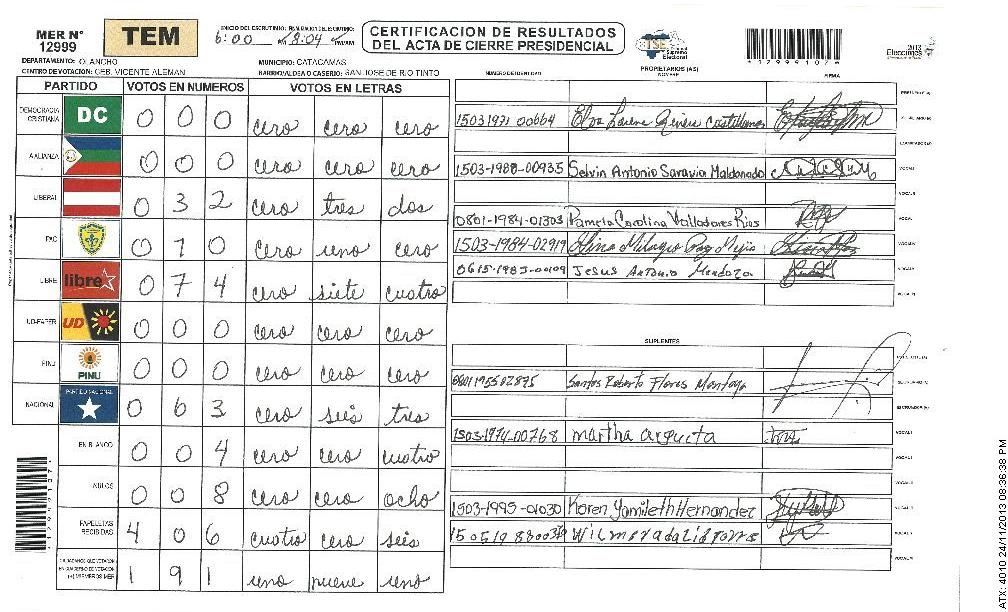 MER N° 12999
TEM
INICIO DEL ESCRUTINIO: FINALIZACION DEL ESCRUTINIO:
6:00 8:04 PM/AM
CERTIFICACION DE RESULTADOS
DEL ACTA DE CIERRE PRESIDENCIAL
TSE Tribunal Supremo Electoral
2013 Elecciones
DEPARTAMENTO: OLANCHO
MUNICIPIO: CATACAMAS
CENTRO DE VOTACION: CEB. VICENTE ALEMAN
BARRIO/ALDEA O CASERIO: SAN JOSE DE RIO TINTO
NUMERO DE IDENTIDAD
PROPIETARIOS (AS)
NOMBRE
FIRMA
PARTIDO VOTOS EN NUMEROS VOTOS EN LETRAS
DEMOCRACIA CRISTIANA DC 0 0 0 cero cero cero
ALIANZA 0 0 0 cero cero cero
LIBERAL 0 3 2 cero tres dos
PAC 0 1 0 cero uno cero
LIBRE libre 0 7 4 cero siete cuatro
UD-FAPER UD 0 0 0 cero cero cero
PINU PINU 0 0 0 cero cero cero
NACIONAL PARTIDO NACIONAL 0 6 3 cero seis tres
EN BLANCO 0 0 4 cero cero cuatro
NULOS 0 0 8 cero cero ocho
PAPELETAS RECIBIDAS 4 0 6 cuatro cero seis
CIUDADANOS QUE VOTARON EN CUADERNO DE VOTACION (+) MIEMBROS MER 1 9 1 uno nueve uno
1503 1971 00664
1503-1988-00935 Selvin Antonio Saravia Maldonado
VOCAL I
0801-1984-01303 Pamela Carolina Valladares Rios
VOCAL
1503-1984-02919
0615-1985-00109 Jesus Antonio Mendoza
SUPLENTES
0801195502895 Santos Roberto Flores Montoya
1503-1974-00768 martha argueta
VOCAL I
1503-1995-01030 Karen Yamileth Hernandez
ATX: 4010 24/11/2013 08:36:38 PM